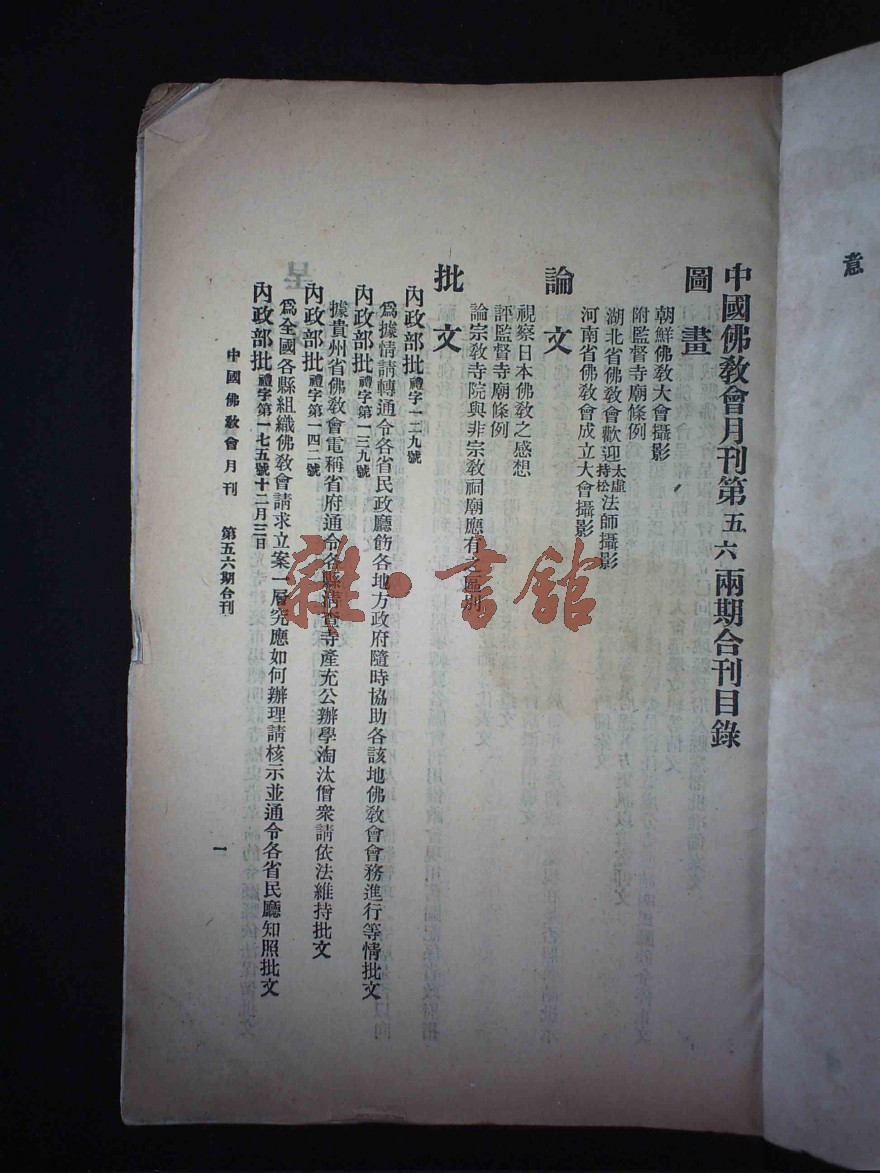 中國佛敎會月刊第五六兩期合刊目錄
圖畫
朝鮮佛敎大會攝影
附監督寺廟條例
湖北省佛敎會歡迎太虛持松法師攝影
河南省佛敎會成立大會攝影
論文
視察日本佛敎之感想
評監督寺廟條例
論宗敎寺院與非宗敎祠廟應有之區別
批文
內政部批禮字一二九號
爲據情請轉通令各省民政廳飭各地方政府隨時協助各該地佛敎會會務進行等情批文
內政部批禮字第一三九號
據貴州省佛敎會電稱省府通令各縣清查寺產充公辦學淘汰僧衆請依法維持批文
內政部批禮字第一四二號
爲全國各縣組織佛敎會請求立案一層究應如何辦理請核示並通令各省民廳知照批文
內政部批禮字第一七五號十二月三日
中國佛敎會月刊 第五六期合刊
一
意
雜·書館